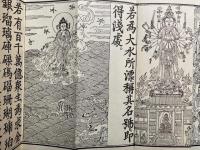 若為大水所漂稱其名號即
得淺處
若有百千萬億衆生為求金
銀瑠璃硨磲碼瑙珊瑚琥珀